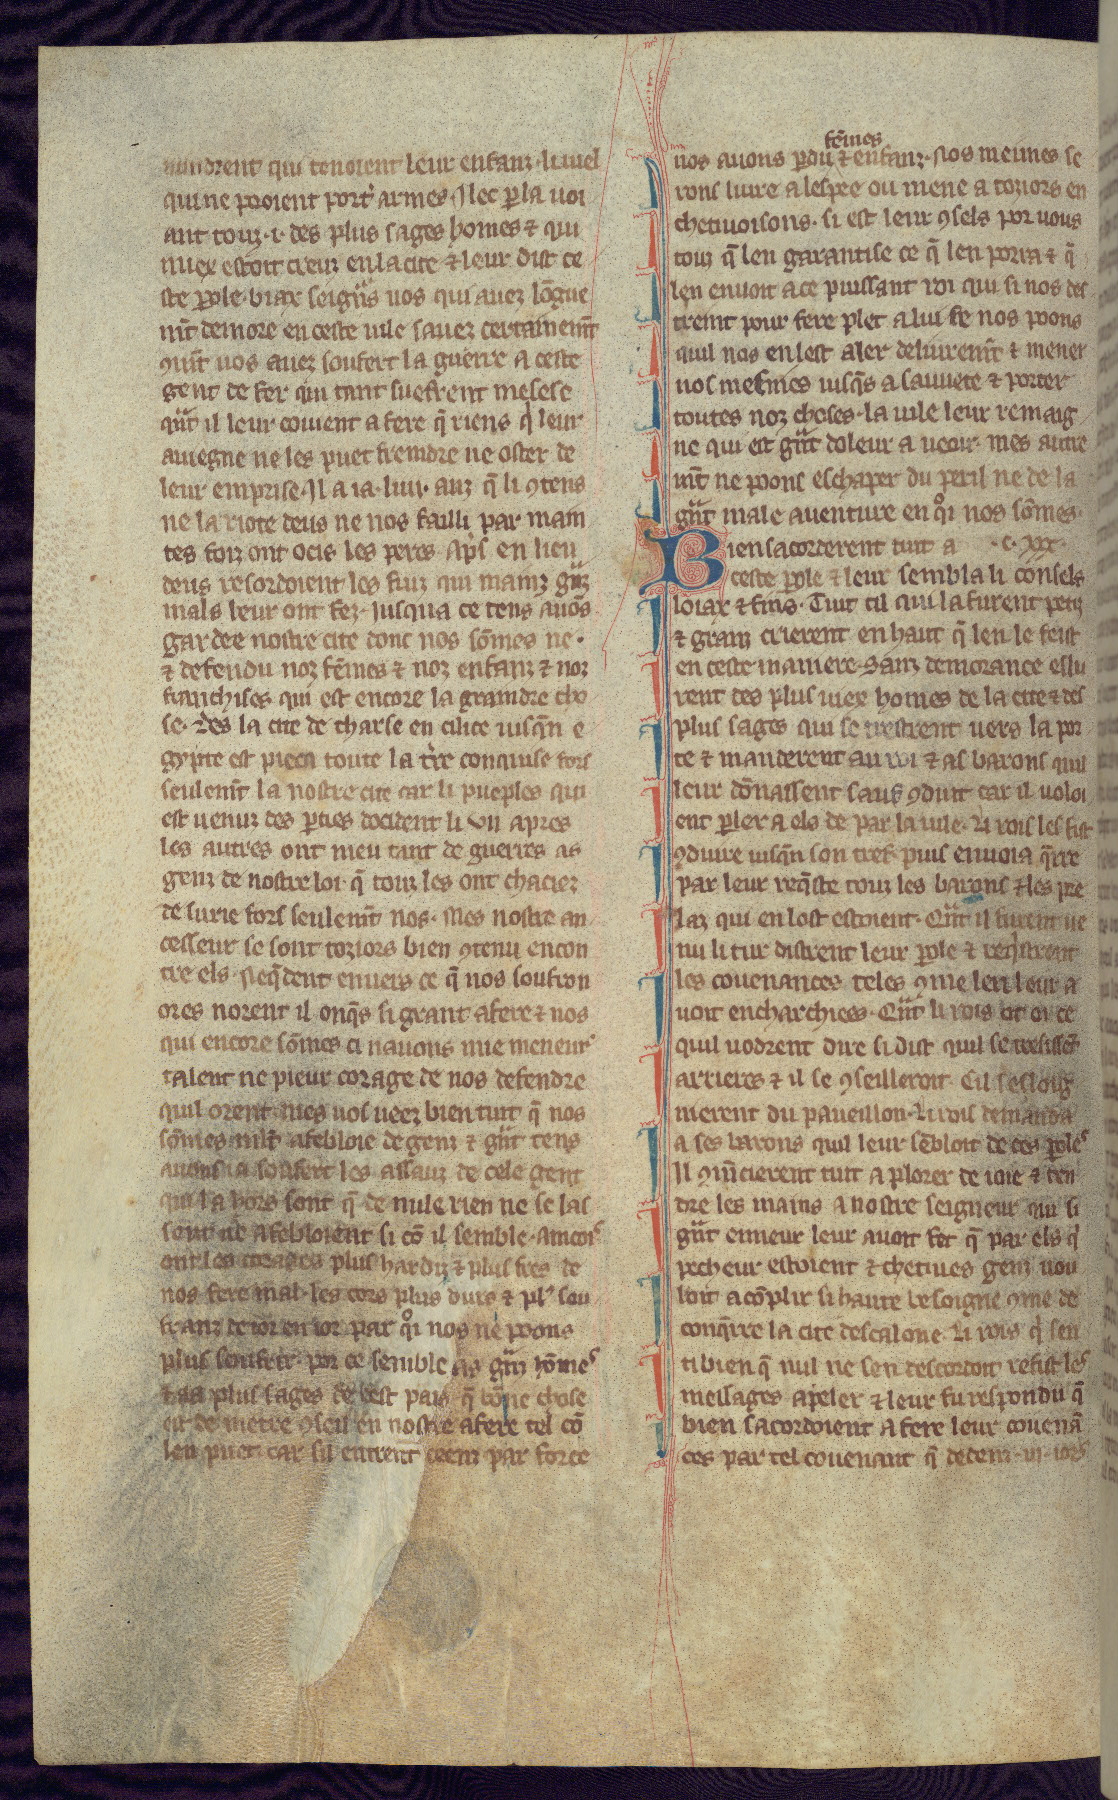 uindrent qui tenoient leur enfanz. li viel
qui ne pooient port' armes. Ilec p la voi
ant touz .i. des plus sages homes ⁊ qui
miex estoit creuz en la cite ⁊ leur dist ce
ste pole. biax seigns vos qui avez lōgue
mt demore en ceste vile savez certainemt
9mt vos avez soufert la guerre a ceste
gent de fer qui tant suefrent mesese
qnt il leur covient a fere q̄ riens q̄ leur
aviegne ne les puet freindre ne oster de
leur emprise. Il a ia .liiii. anz q̄ li 9tens
ne la riote deus ne nos failli par main
tes foiz ont ocis les peres aps en lieu
deus resordoient les fiuz qui mainz gnz
mals leur ont fez. Jusqua ce tens avōs
gardee nostre cite donc nos sōmes ne.
⁊ defendu noz fēmes ⁊ noz enfanz ⁊ noz
franchises qui est encore la graindre cho
se. Des la cite de tharse en cilice iusqn e
gypte est pieca toute la tre conquise fors
seulemt la nostre cite car li pueples qui
est venuz des pties docident li un apres
les autres ont meu tant de guerres as
genz de nostre loi. q̄ touz les ont chaciez
de surie fors seulemt nos. Mes nostre an
cesseur se sont toziors bien 9tenu encon
tre els. Neqdent envers ce q̄ nos soufron
ores norent il onqs si grant afere ⁊ nos
qui encore sōmes ci navons mie meneur
talent ne pieur corage de nos defendre
quil orent mes vos veez bien tuit q̄ nos
sōmes mlt afebloie de genz ⁊ gnt tens
avons ia soufert les assauz de cele gent
qui la hors sont q̄ de nule rien ne se las
sent ne afebloient si cō il semble. Aincois
ont les corages plus hardiz ⁊ plus fres de
nos fere mal. les cors plus durs ⁊ pls sou
franz de ior en ior par qoi nos ne poons
plus soufrir. por ce semble as gnz homes
⁊ aa plus sages de cest pais q̄ bōne chose
est de metre 9seil en nostre afere tel cō
len puet. car sil entrent ceenz par force
nos avons pdu fēmes ⁊ enfanz. Nos meimes se
rons livre a lespee ou mene a toziors en
chetivoisons. si est leur 9sels por vous
touz q̄ len garantise ce q̄ len porra ⁊ q̄
len envoit a ce puissant roi qui si nos des
treint pour fere plet a lui se nos poons
quil nos en lest aler delivremt ⁊ mener
nos mesmes iusqs a sauvete ⁊ porter
toutes noz choses. la vile leur remaig
ne qui est gnt doleur a veoir. mes autre
mt ne poons eschaper du peril ne de la
gnt male aventure en qoi nos sōmes.
Bien sacorderent tuit a .c. xx.
ceste pole ⁊ leur sembla li consels
loiax ⁊ fins. Tuit cil qui la furent petiz
⁊ granz crierent en haut q̄ len le feist
en ceste maniere. Sanz demorance eslu
rent des plus viex homes de la cite ⁊ des
plus sages qui se trestrent vers la por
te ⁊ manderent au roi ⁊ as barons quil
leur dōnassent sauf 9duit car il voloi
ent pler a els de par la vile. Li rois les fist
9duire iusqn son tref. puis envoia qrre
par leur reqste touz les barons ⁊ les pre
laz qui en lost estoient. Qnt il furent ve
nu li tur distrent leur pole ⁊ reqistrent
les covenances teles 9me len leur a
voit encharchiees. Qnt li rois ot oi ce
quil vodrent dire si dist quil se tresissēt
arrieres ⁊ il se 9seilleroit. Cil sesloig
nierent du paveillon. Li rois demanda
a ses barons quil leur sēbloit de ces poles
Il 9mēcierent tuit a plorer de ioie ⁊ ten
dre les mains a nostre seigneur qui si
gnt enneur leur avoit fet q̄ par els q̄
pecheur estoient ⁊ chetives genz vou
loit acōplir si haute besoigne 9me de
conqrre la cite descalone. Li rois q̄ sen
ti bien q̄ nul ne sen descordoit refist les
messages apeler ⁊ leur fu respondu q̄
bien sacordoient a fere leur covenā
ces par tel covenant q̄ dedenz .iii. iors